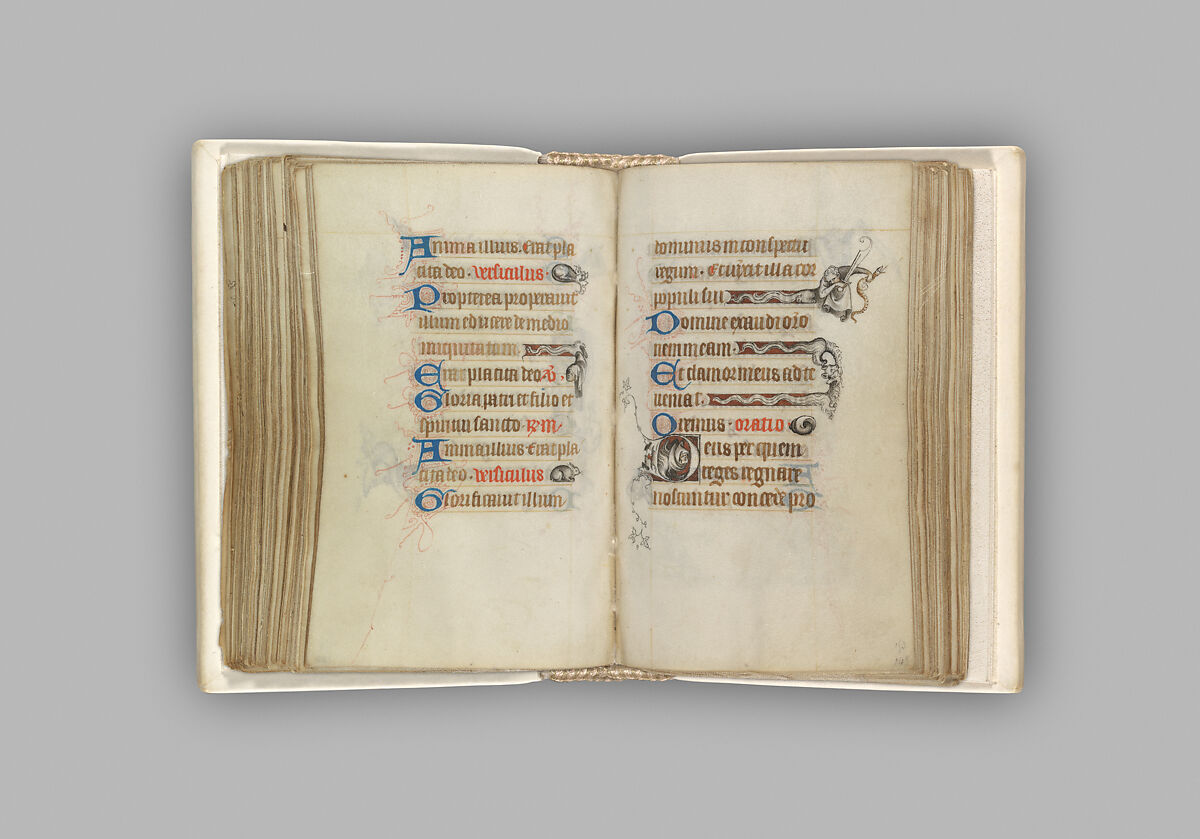 Anima illius. Erat pla
cita deo. versiculus
Propterea properavit
illum educere de medio
iniquitatum.
Erat placita deo. v.
Gloria patri et filio et
spiritui sancto. Rm.
Anima illius. Erat pla
cita deo. versiculus
Glorificavit illum
dominus in conspectu
regum. Et iussit illa cor
populi sui
Domine exaudi oro
nem meam.
Et clamor meus ad te
veniat.
Oremus. oratio
Deus per quem
reges regnare
noscuntur concede pro